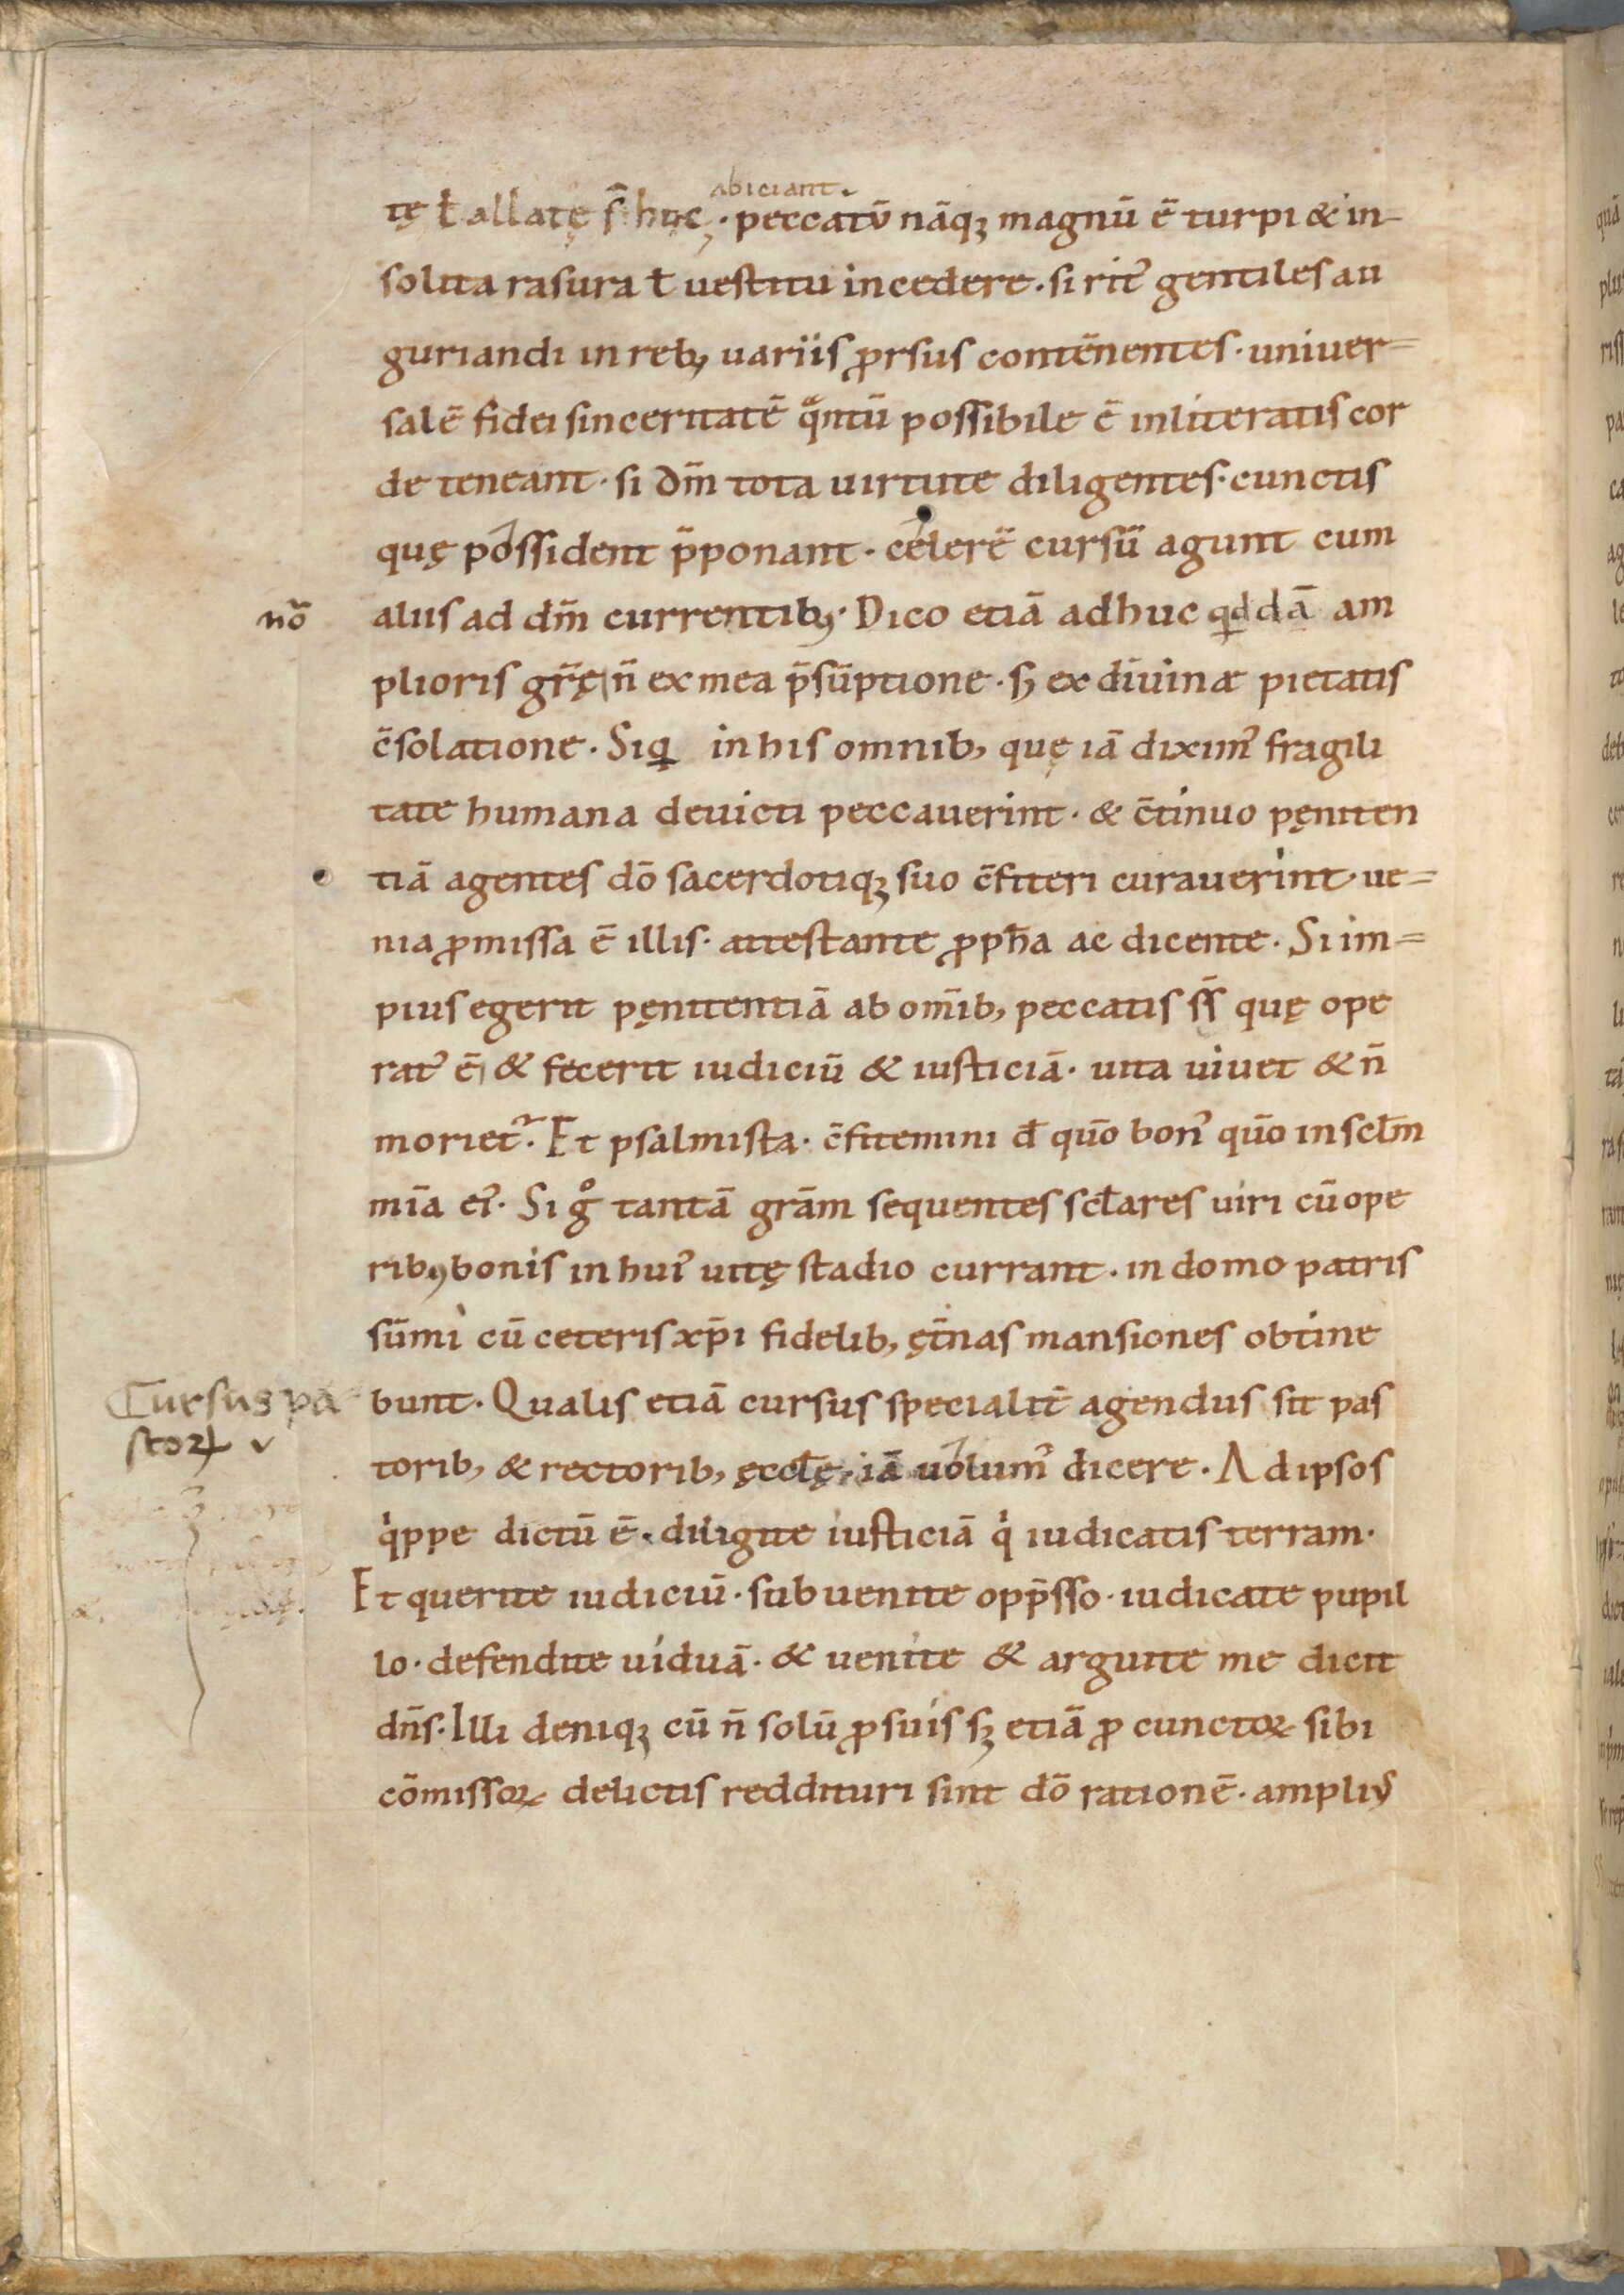 abiciant
tę ł allatę s̄ huc · peccatū nāq; magnū ē turpi & in-
solita rasura ł uestitu incedere · si rit᷒ gentiles au
guriandi in reb; uariis ꝓrsus contēnentes · uniuer=
salē fidei sinceritatē qͣntū possibile ē inliteratis cor
de teneant · si dm̄ tota uirtute diligentes · cunctis
quę possident p̄ponant · celerē cursū agunt cum
nō aliis ad dm̄ currentib; · Dico etiā adhuc qͥddā am
plioris gr̄ę n̄ ex mea p̄sūptione · sꝫ ex diuinæ pietatis
c̄solatione · Siqͥ in his omnib; quę iā dixim᷒ fragili
tate humana deuicti peccauerint · & c̄tinuo pęniten
tiā agentes dō sacerdotiq; suo c̄fiteri curauerint · ue=
nia ꝓmissa ē illis · attestante ꝓph̄a ac dicente · Si im=
pius egerit pęnitentiā ab om̄ib; peccatis ss̄ quę ope
rat᷒ ē & fecerit iudiciū & iusticiā · uita uiuet & n̄
moriet᷒ · Et psalmista · c̄fitemini đ quō bon᷒ quō in scłm
mīa ei᷒ · Si gͦ tantā grām sequentes scłares uiri cū ope
rib; bonis in hui᷒ uitę stadio currant · in domo patris
sūmi cū ceteris xp̄i fidelib; ęt̄nas mansiones obtine
Cursus pa
stoꝝ
bunt · Qualis etiā cursus specialit̄ agendus sit pas
torib; & rectorib; ęccłę · iā uolum᷒ dicere · Ad ipsos
qͥppe dictū ē · diligite iusticiā qͥ iudicatis terram ·
Et querite iudiciū · subuenite opp̄sso · iudicate pupil
lo · defendite uiduā · & uenite & arguite me dicit
dn̄s · Illi deniq; cū n̄ solū ꝓ suis sꝫ etiā ꝓ cunctoꝝ sibi
cōmissoꝝ delictis reddituri sint dō rationē · ampli᷒